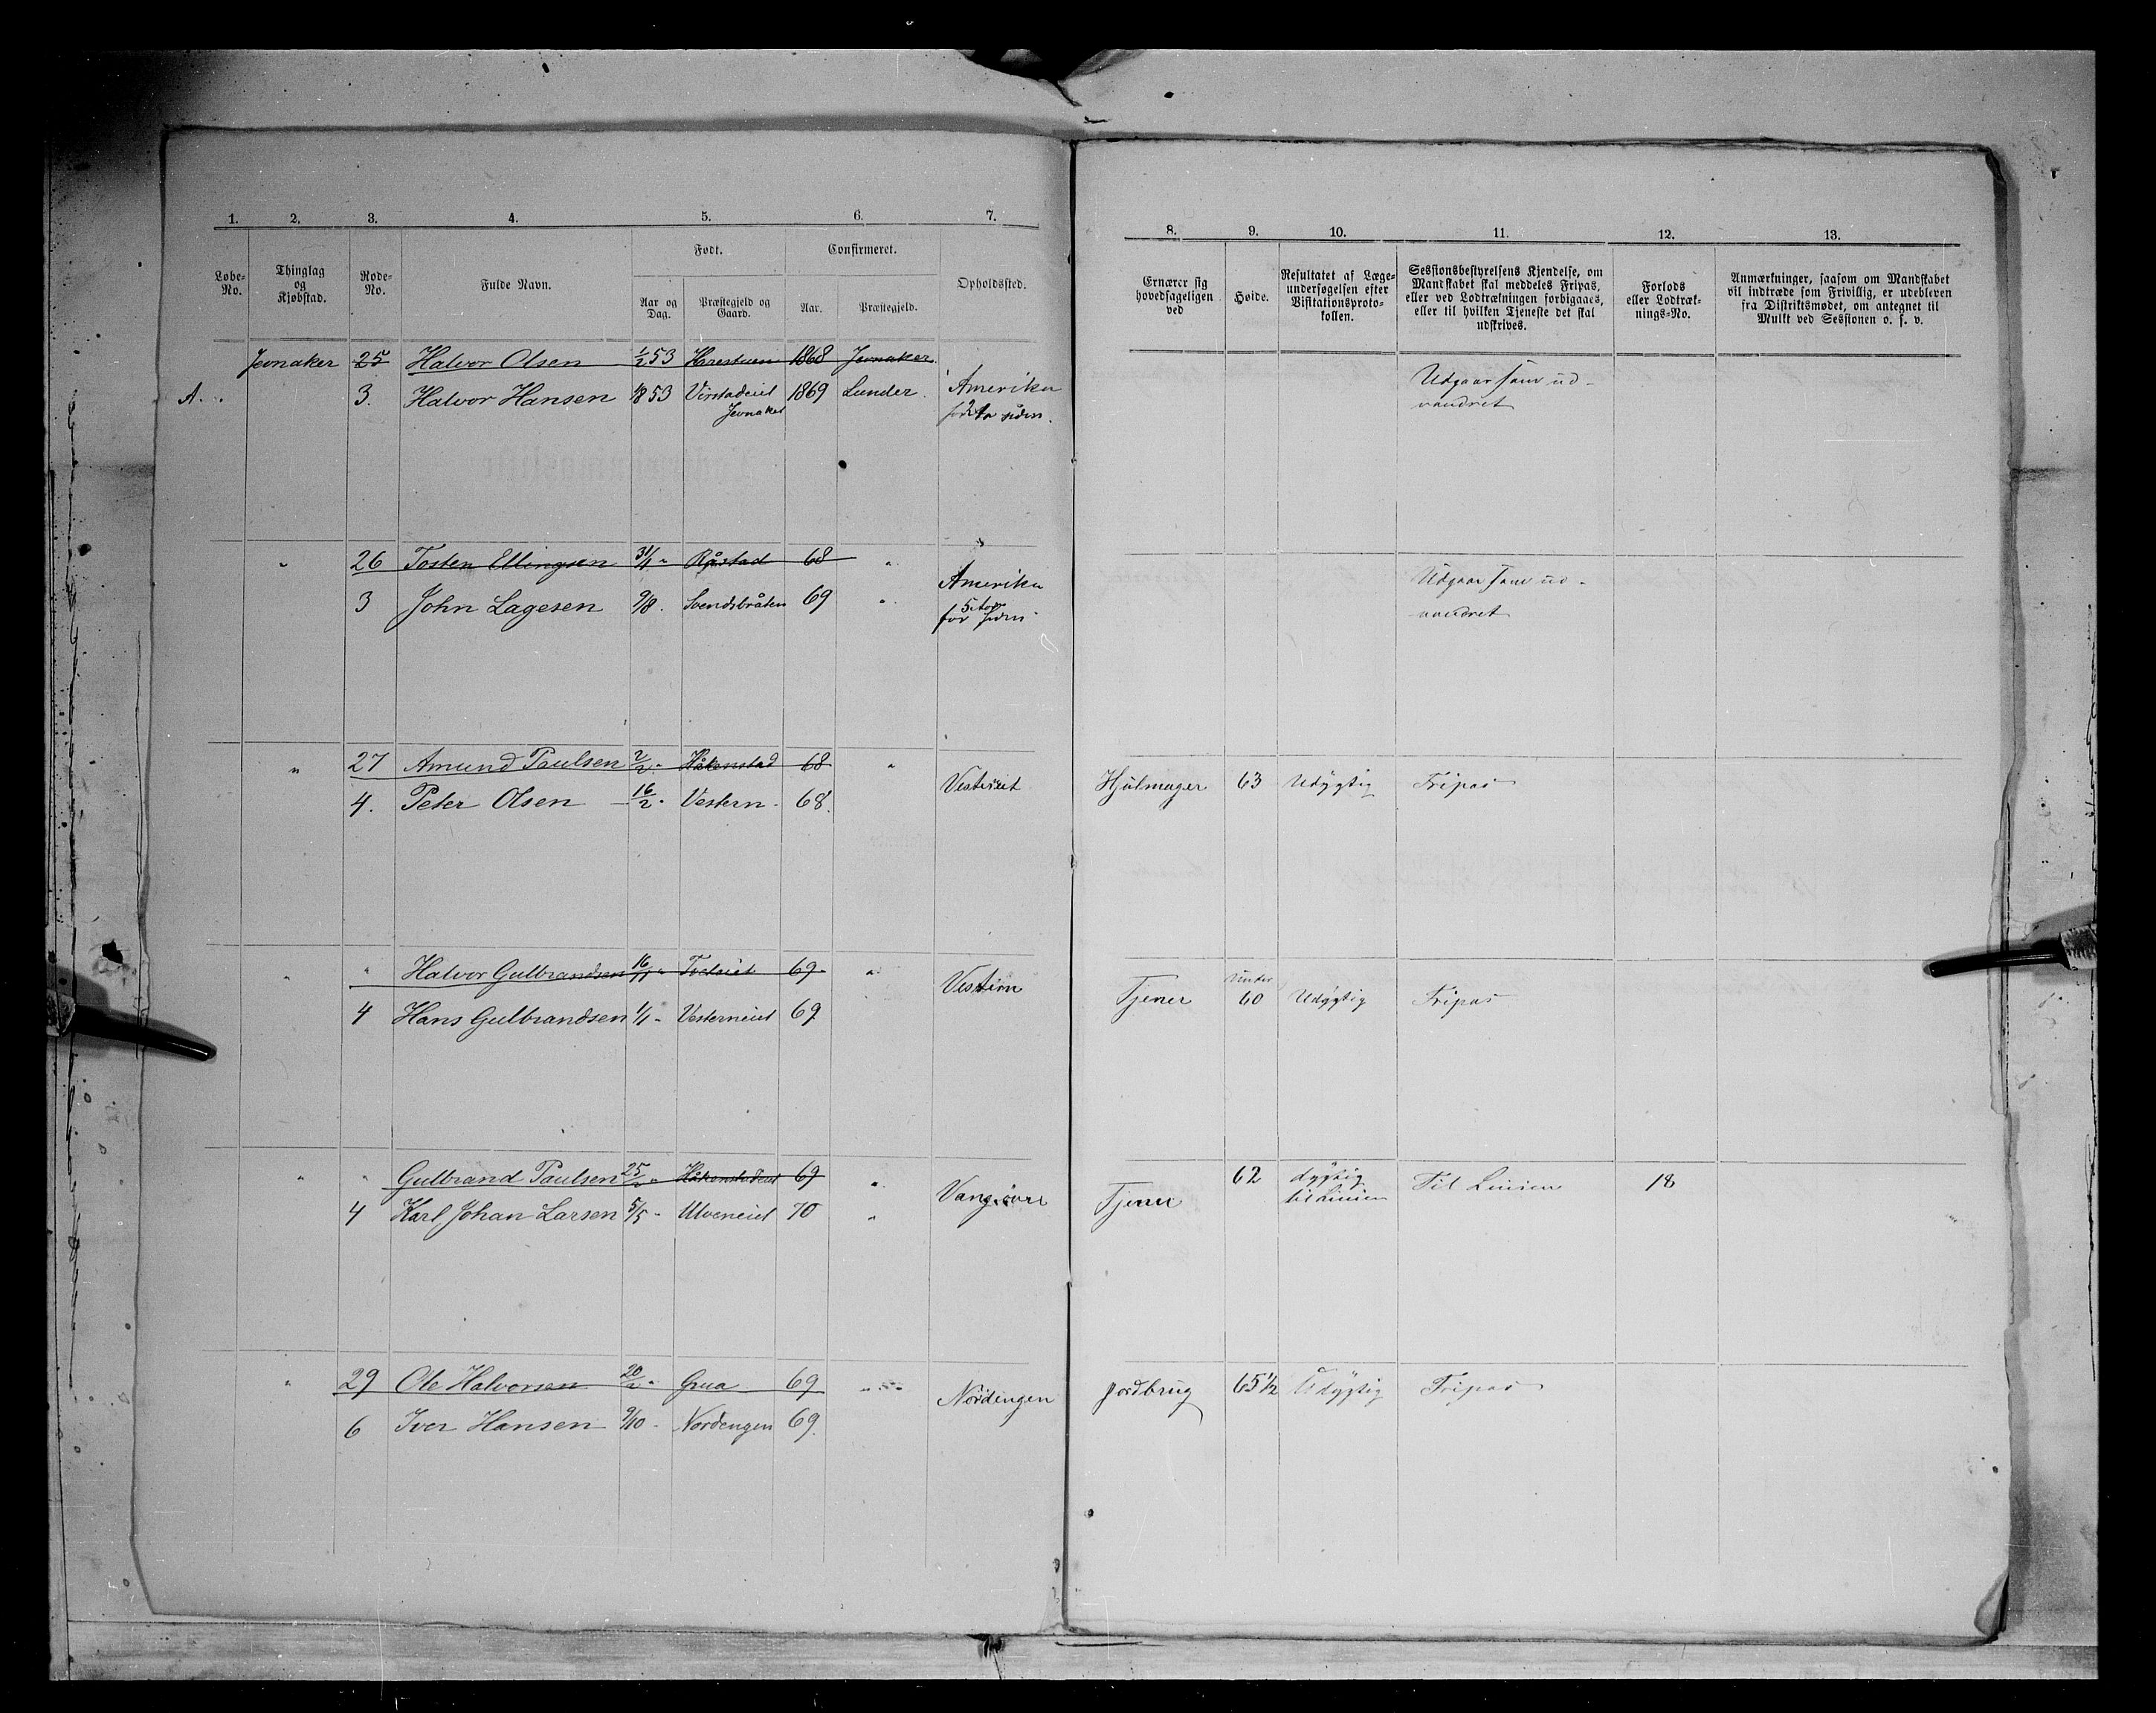 1. 2. 3. 4. 5. 6. 7.
Løbe-No. Thinglag og Kjøbstad. Rode-No. Fulde Navn. Født. Confirmeret. Opholdssted.
Aar og Dag. Præstegjeld og Gaard. Aar. Præstegjeld.
Jevnaker 25 Halvor Olsen 1/2 53 Harestuen 1868 Jevnaker
A. 3. Halvor Hansen 1/8 53 Virstadeiet Jevnaket 1869 Lunder. Amerika
for 2 Aar siden.
" 26 Tosten Ellingsen 31/1 " Råstad 68 "
3 John Lagesen 9/8. Svendsbråten 69 " Amerika
for 5 Aar siden
" 27 Amund Paulsen 2/2 " Håkenstad 68 "
4. Peter Olsen 16/2 " Vestern 68.
" " Halvor Gulbrandsen 16/11 " Tveteiet 69 " Vestern
4 Hans Gulbrandsen 1/1 " Vesterneiet 69
" " Gulbrand Paulsen 25/2 " Håkenstadeiet 69 "
4 Karl Johan Larsen 5/5 " Ulveneiet 70 "
" 29 Ole Halvorsen 20/2 " Grua 69 " Nordengen
6 Iver Hansen 9/10 " Nordengen 69.
8. 9. 10. 11. 12. 13.
Ernærer sig hovedsageligen ved
Høide.
Resultatet af Lægeundersøgelsen efter Visitationsprotokollen.
Sessionsbestyrelsens Kjendelse, om Mandskabet skal meddeles Fripas, eller ved Lodtrækningen forbigaaes, eller til hvilken Tjeneste det skal udskrives.
Forlods eller Lodtræknings-No.
Anmærkninger, saasom om Mandskabet vil indtræde som Frivillig, er udebleven fra Distriktsmødet, om antegnet til Mulkt ved Sessionen o. s. v.
Udgaar som ud-
vandret
Udgaar som ud-
vandret
Hjulmager 63 Udygtig Fripas
Tjener under 60 Udygtig Fripas
Tjener 62 dygtig til Linien Til Linien 18
Jordbrug 65 1/2 Udygtig Fripas